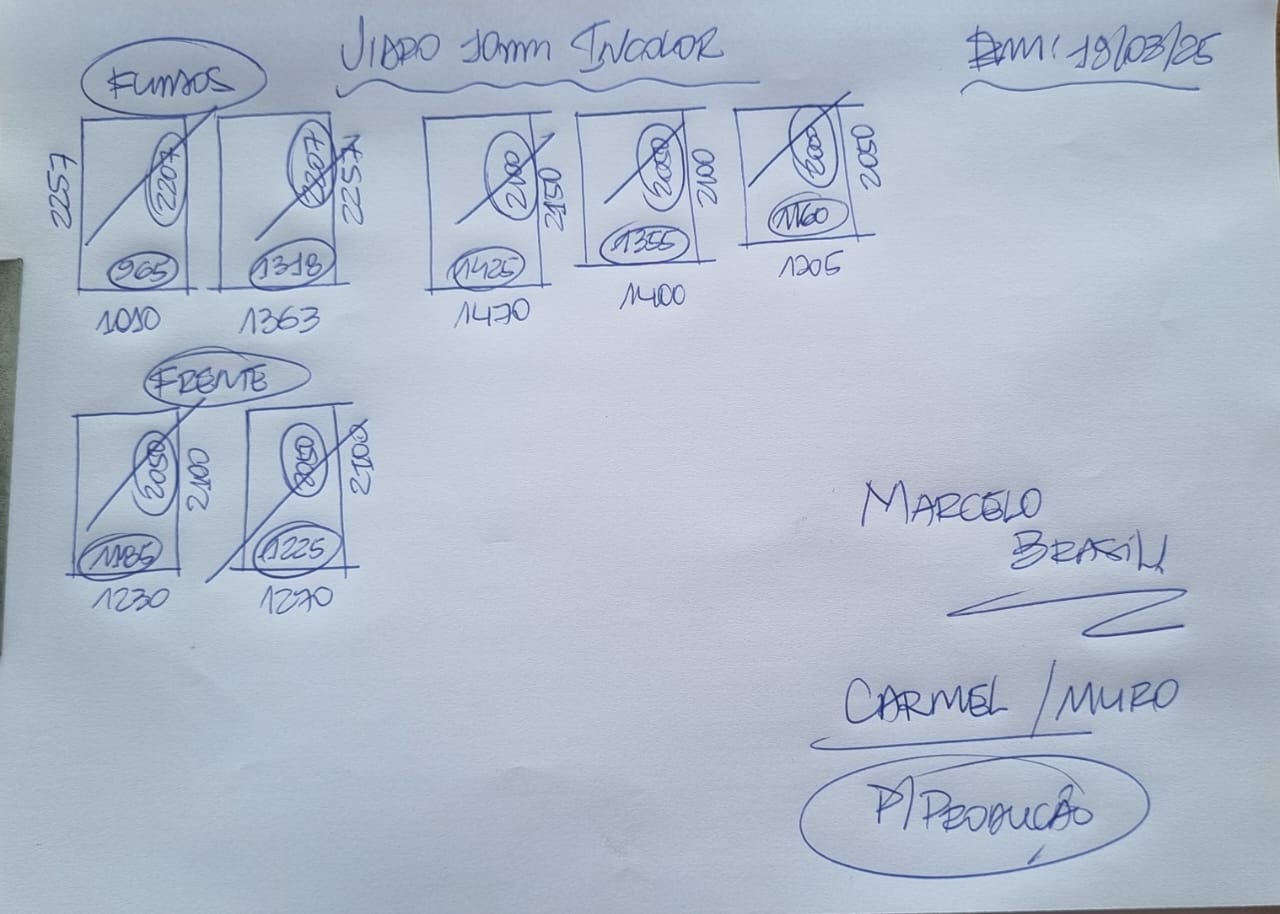 VIDRO 10mm INCOLOR
EM: 19/03/25
FUNDOS
2257
2207
965
1010
2207
2257
1318
1363
2100
2150
1425
1470
2050
2100
1355
1400
2000
2050
1160
1205
FRENTE
2050
2100
1185
1230
2050
2100
1225
1270
MARCELO
BRASIL
CARMEL / MURO
P/PRODUCÃO